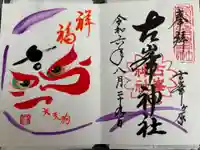 奉拝
古峯ヶ原
古峯神社
令和六年八月二十
祥福
大天狗